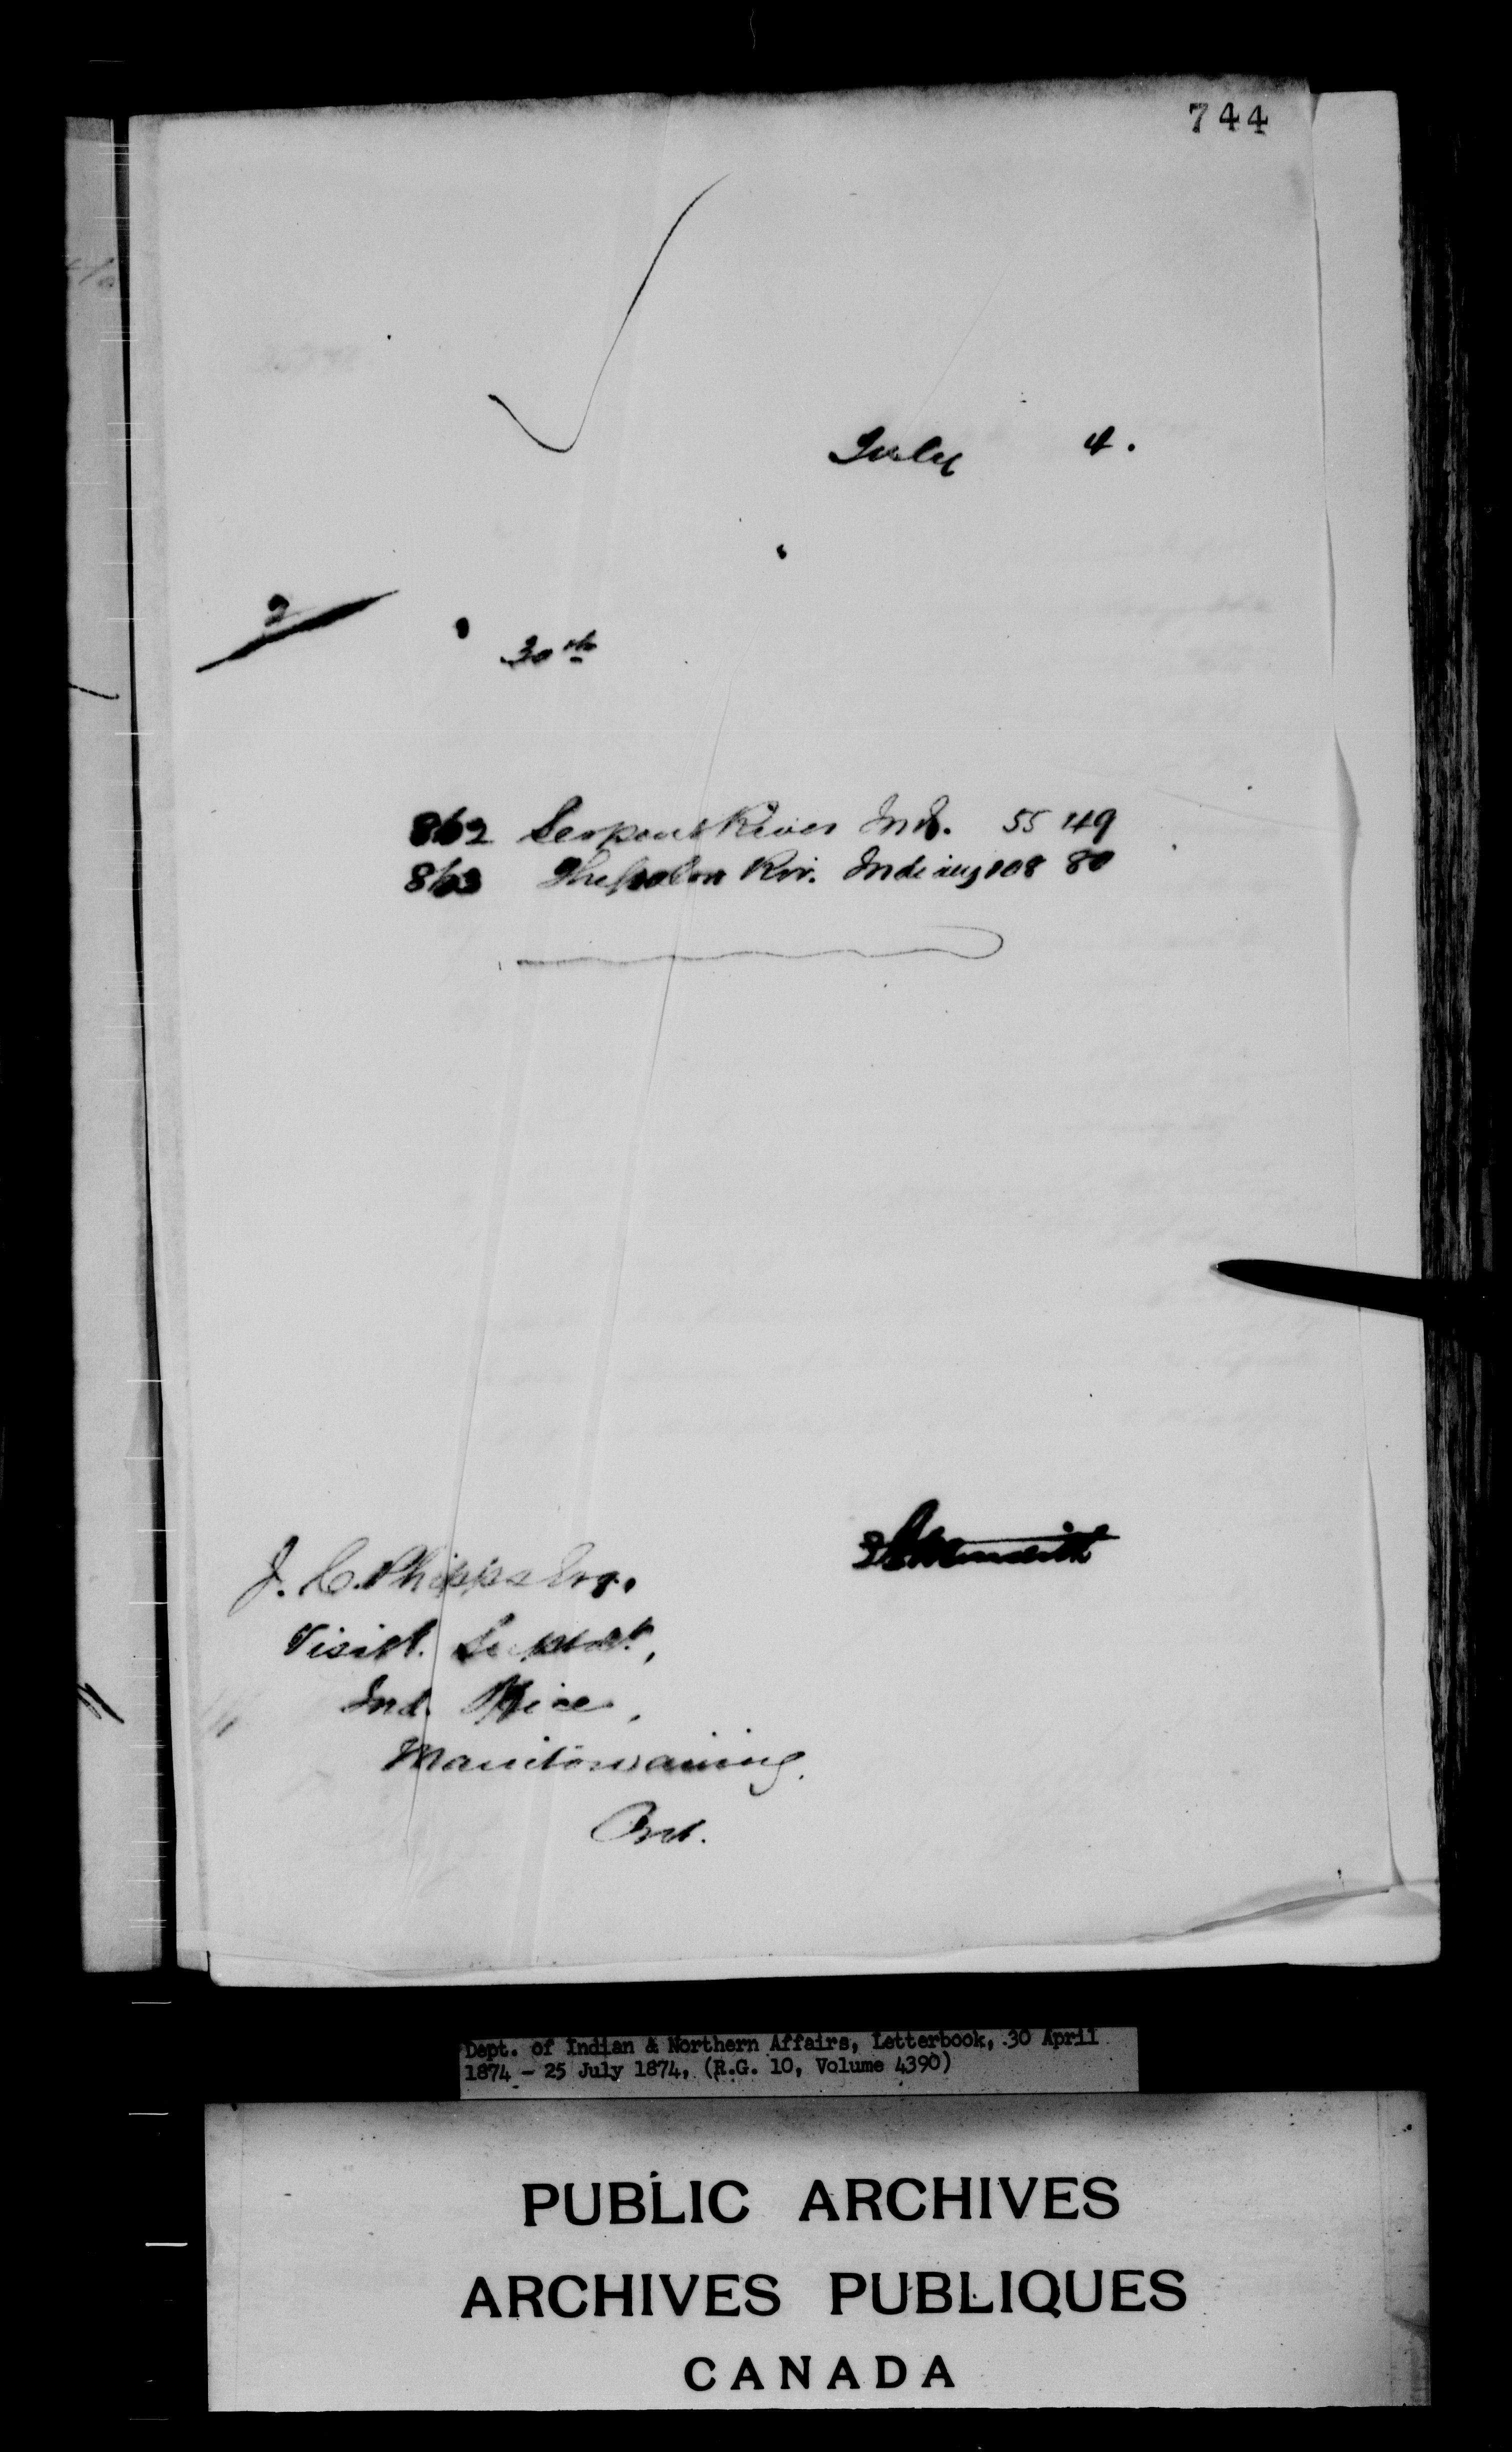 744
July 4.
2
30th
862 Serpent River Ind. 55 49
863 Thessalon Riv. Indians 108 80
J. C. Phipps Esq.
Visitg. Supndt,
Ind. Office,
Manitowaning.
Ont.
Dept. of Indian & Northern Affairs, Letterbook, 30 April
1874 - 25 July 1874, (R.G. 10, Volume 4390)
PUBLIC ARCHIVES
ARCHIVES PUBLIQUES
CANADA